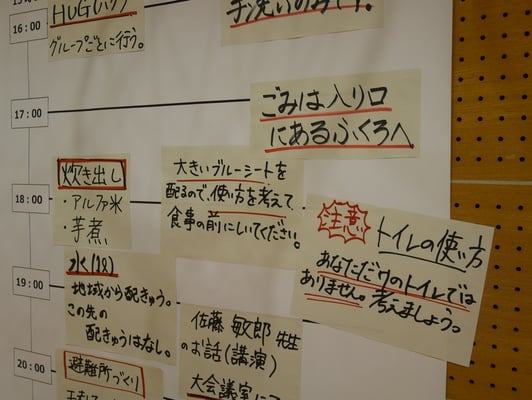 16:00
HUG
グループごとに行う。
17:00
ごみは入り口
にあるふくろへ
炊き出し
・アルファ米
・芋煮
大きいブルーシートを
配るので、使い方を考えて
食事の前にしいてください。
18:00
注意
トイレの使い方
あなただけのトイレでは
ありません。考えましょうっ
水(1ℓ)
地域から配きゅう。
この先の
配きゅうはなし。
19:00
佐藤 敏郎 先生
のお話(講演)
大会議室にて
20:00
避難所づくり